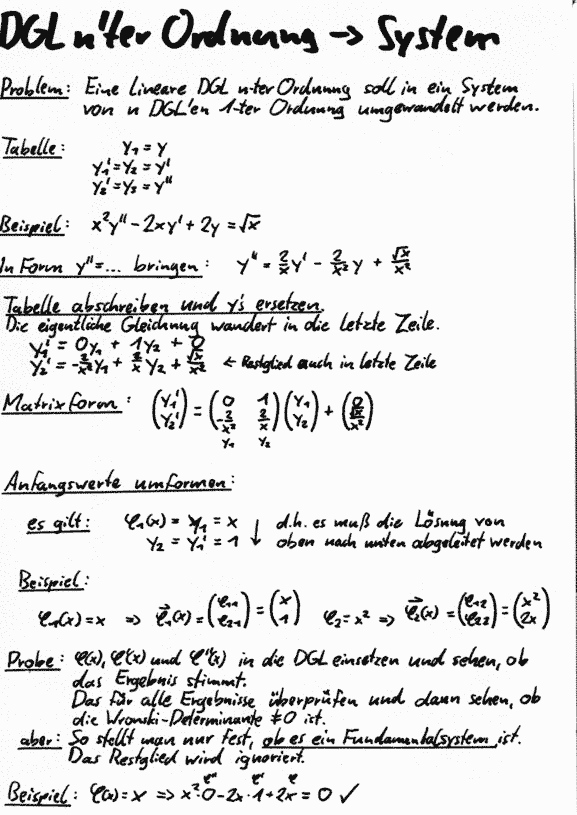 DGL n'ter Ordnung → System
Problem: Eine lineare DGL n-ter Ordnung soll in ein System
von n DGL'en 1-ter Ordnung umgewandelt werden.
Tabelle: y₁ = y
y₁' = y₂ = y'
y₂' = y₃ = y''
Beispiel: x²y'' - 2xy' + 2y = √x
In Form y''=... bringen: y'' = 2/x y' - 2/x² y + √x/x²
Tabelle abschreiben und y's ersetzen.
Die eigentliche Gleichung wandert in die letzte Zeile.
y₁' = 0y₁ + 1y₂ + 0
y₂' = -2/x² y₁ + 2/x y₂ + √x/x² ← Restglied auch in letzte Zeile
Matrixform: (y₁' y₂') = (0 1 -2/x² 2/x) (y₁ y₂) + (0 √x/x²)
y₁ y₂
Anfangswerte umformen:
es gilt: φ₁(x) = y₁ = x ↓ d.h. es muß die Lösung von
y₂ = y₁' = 1 oben nach unten abgeleitet werden
Beispiel:
φ₁(x) = x ⇒ φ⃗₁(x) = (φ₁₁ φ₂₁) = (x 1) φ₂ = x² ⇒ φ⃗₂(x) = (φ₁₂ φ₂₂) = (x² 2x)
Probe: φ(x), φ'(x) und φ''(x) in die DGL einsetzen und sehen, ob
das Ergebnis stimmt.
Das für alle Ergebnisse überprüfen und dann sehen, ob
die Wronski-Determinante ≠0 ist.
aber: So stellt man nur fest, ob es ein Fundamentalsystem ist.
Das Restglied wird ignoriert.
φ'' φ' φ
Beispiel: φ(x) = x ⇒ x²·0 - 2x·1 + 2x = 0 ✓